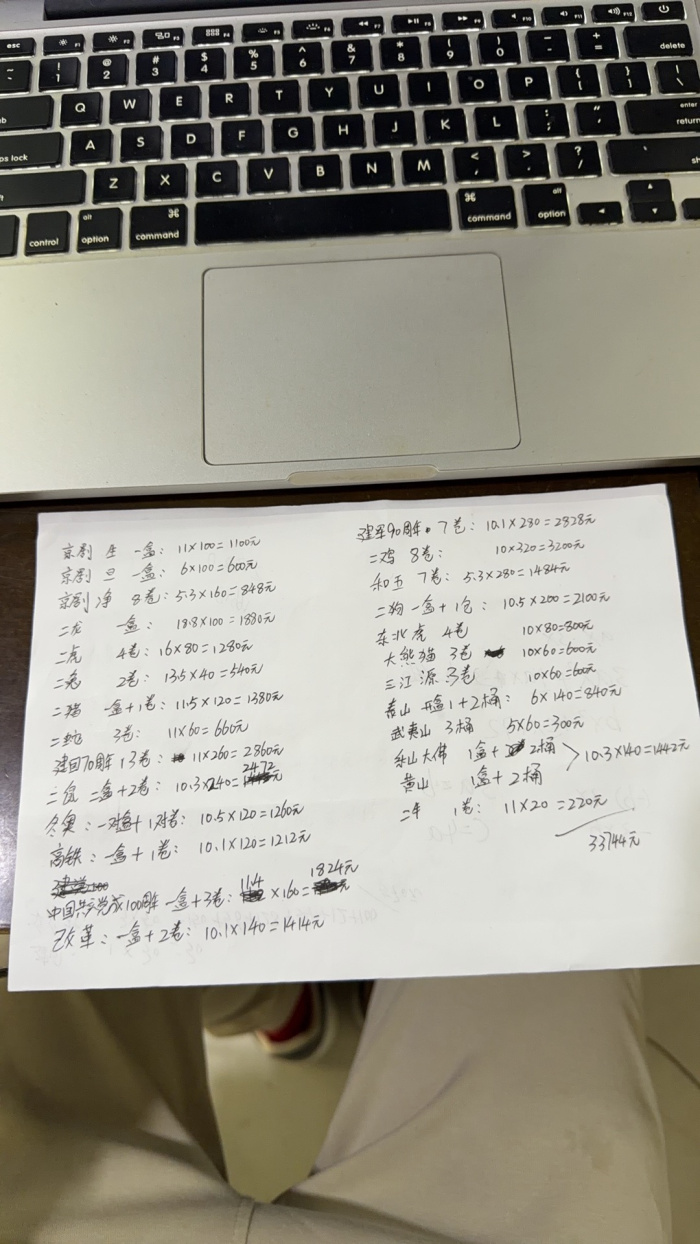 esc F1 F2 F3 F4 F5 F6 F7 F8 F9 F10 F11 F12
~ ! 1 @ 2 # 3 $ 4 % 5 ^ 6 & 7 * 8 ( 9 ) 0 - + = delete
Q W E R T Y U I O P { [ } ] | \
caps lock A S D F G H J K L : ; " ' enter return
Z X C V B N M < , > . ? /
control alt option ⌘ command ⌘ command alt option
京剧 生 一盒: 11×100=1100元
京剧 旦 一盒: 6×100=600元
京剧 净 8卷: 5.3×160=848元
二龙 一盒: 18.8×100=1880元
二虎 4卷: 16×80=1280元
二兔 2卷: 13.5×40=540元
二猪 一盒+1卷: 11.5×120=1380元
二蛇 3卷: 11×60=660元
建国70周年 13卷: 11×260=2860元
二鼠 二盒+2卷: 10.3×240=2472元
冬奥: 一对盒+1对卷: 10.5×120=1260元
高铁: 一盒+1卷: 10.1×120=1212元
中国共产党成100周年 一盒+3卷: 11.4×160=1824元
改革: 一盒+2卷: 10.1×140=1414元
建军90周年 7卷: 10.1×280=2828元
二鸡 8卷: 10×320=3200元
和五 7卷: 5.3×280=1484元
二狗 一盒+1包: 10.5×200=2100元
东北虎 4卷 10×80=800元
大熊猫 3卷 10×60=600元
三江源 3卷 10×60=600元
泰山 1+2桶: 6×140=840元
武夷山 3桶 5×60=300元
乐山大佛 1盒+2桶 10.3×140=1442元
黄山 1盒+2桶
二牛 1卷: 11×20=220元
33744元